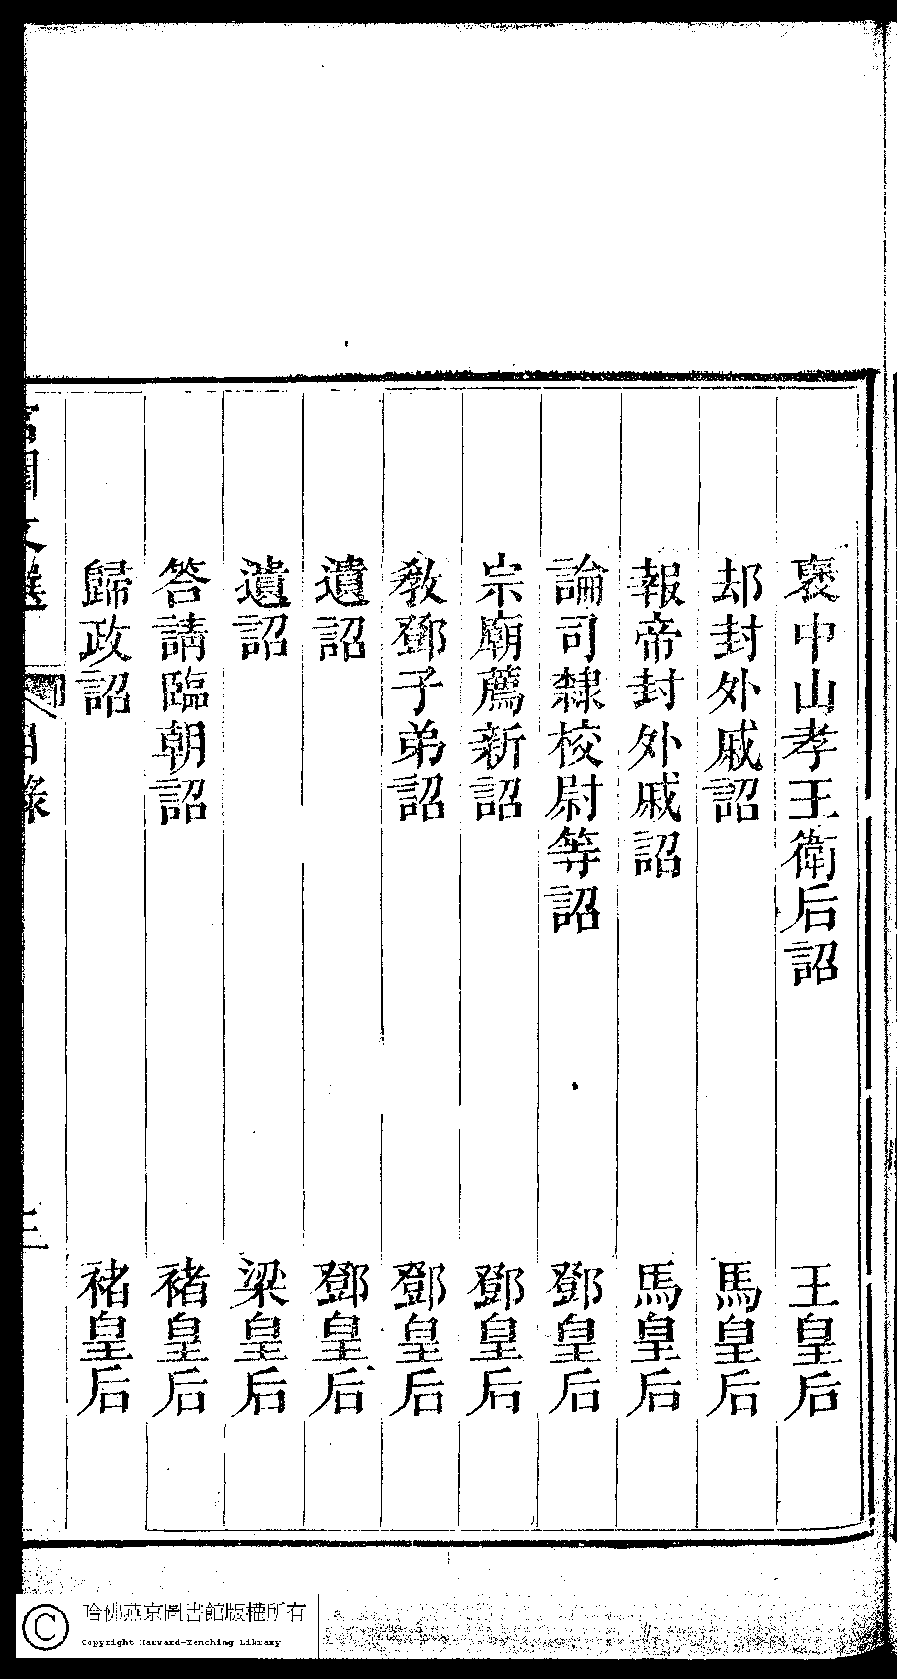 褒中山孝王衛后詔 王皇后
却封外戚詔 馬皇后
報帝封外戚詔 馬皇后
論司隸校尉等詔 鄧皇后
宗廟薦新詔 鄧皇后
敎鄧子弟詔 鄧皇后
遺詔 鄧皇后
遺詔 梁皇后
答請臨朝詔 褚皇后
歸政詔 褚皇后
宮閨文選 目錄 三
哈佛燕京圖書館版權所有
Copyright Harvard-Yenching Library